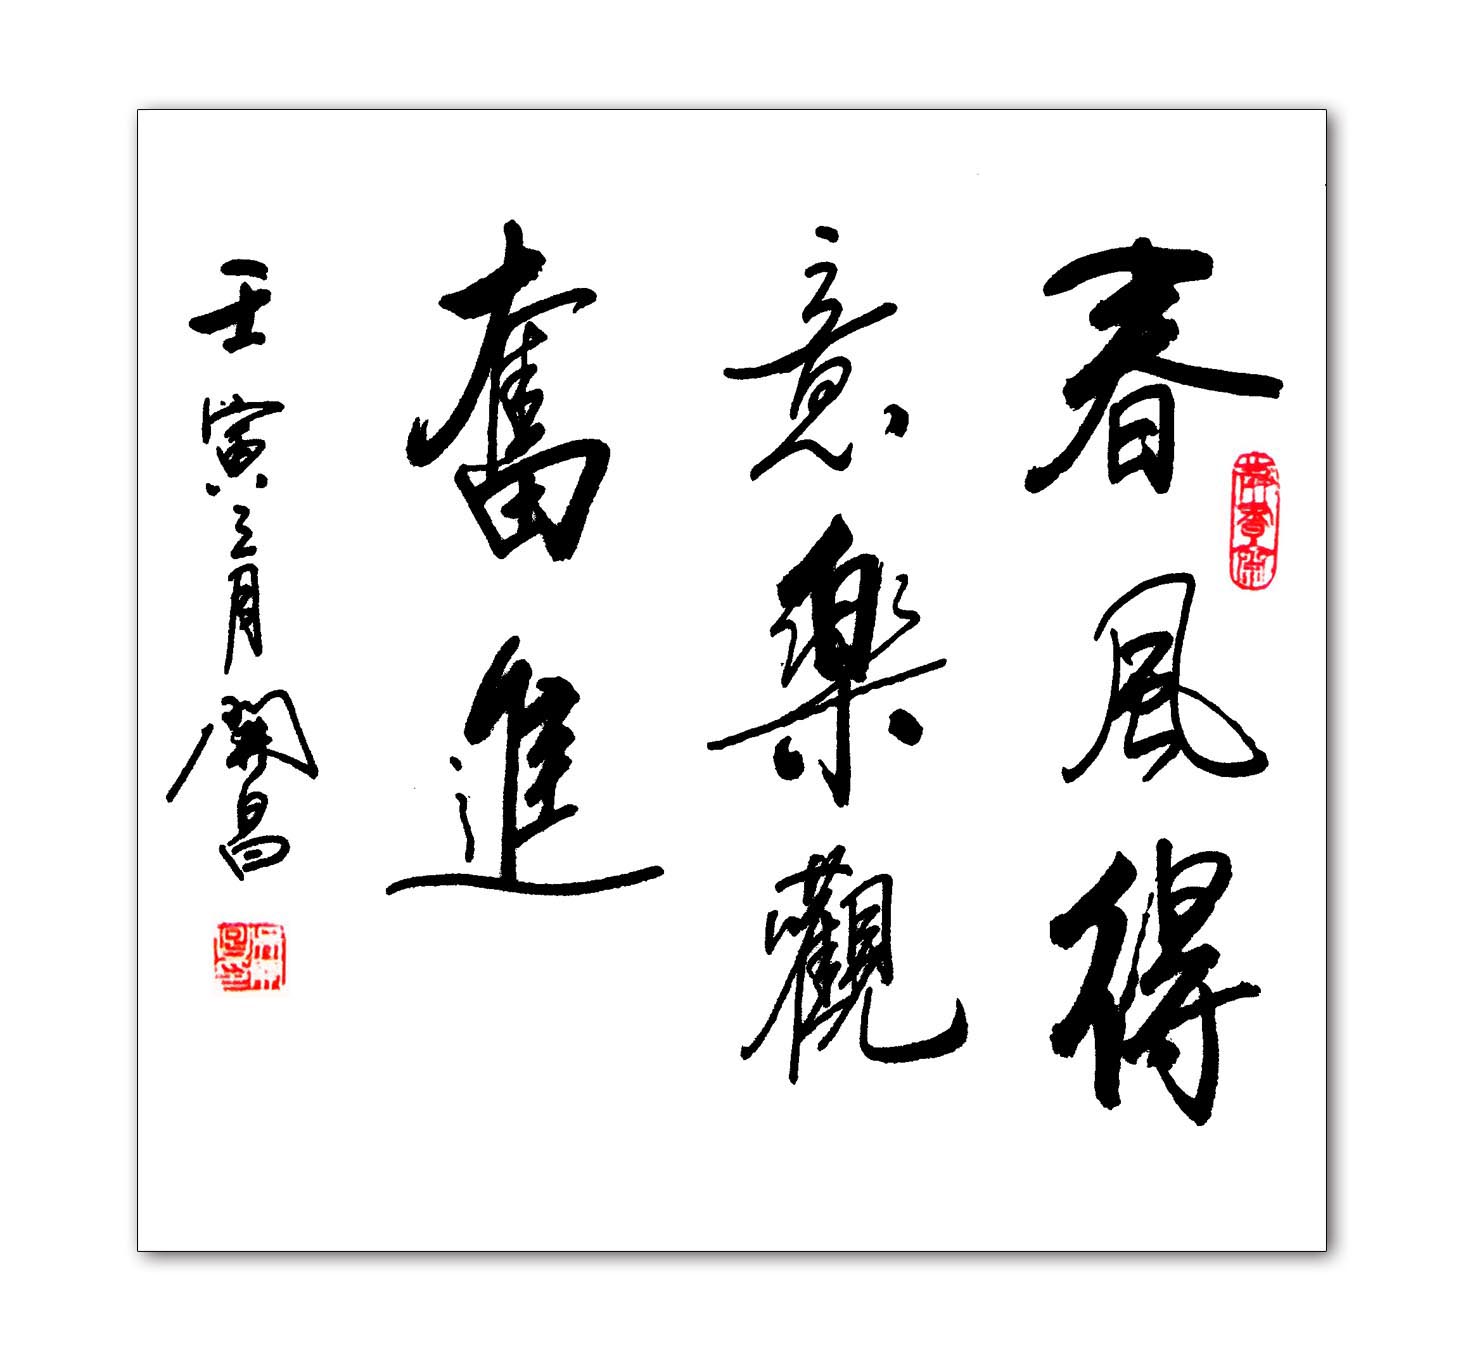 春風得
意樂觀
奮進
壬寅三月開昌